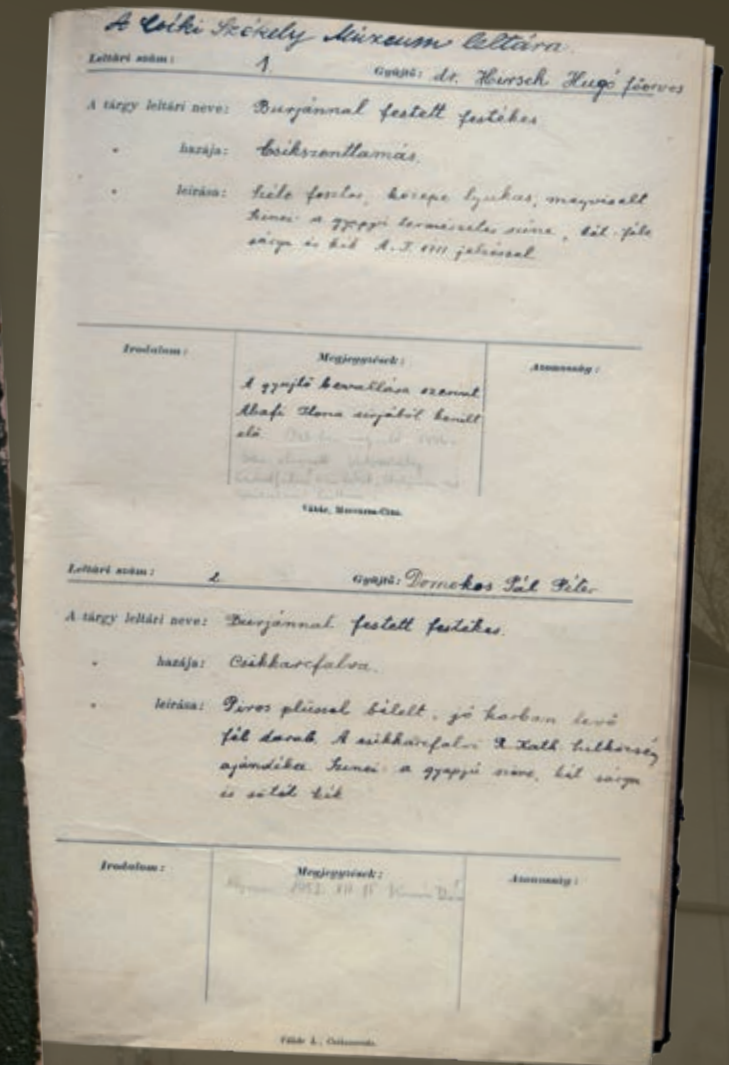 A Csiki Székely Múzeum leltára.
Leltári szám: 1. Gyüjtő: dr. Hirsch Hugó főorvos
A tárgy leltári neve: Burjánnal festett festékes
" hazája: Csikszenttamás.
" leírása: Széle foszlos, közepe lyukas, megviselt
Szinei: a gyapju természetes szine, két-féle
sárga és kék A. I. 1711 jelzéssel
Irodalom: Megjegyzések: Azonosság:
A gyüjtő bevallása szerint
Abafi Ilona sirjából került
elő
Vákár, Mercurea-Ciuc.
Leltári szám: 2 Gyüjtő: Domokos Pál Péter
A tárgy leltári neve: Burjánnal festett festékes.
" hazája: Csikkarcfalva.
" leírása: Piros plüssel bélelt, jó karban levő
fél darab. A csikkarcfalvi R. Kath. hitközség
ajándéka. Szinei: a gyapjú szine, két sárga
és sötét kék
Irodalom: Megjegyzések: Azonosság:
1952. VII 15
Vákár L., Csikszereda.